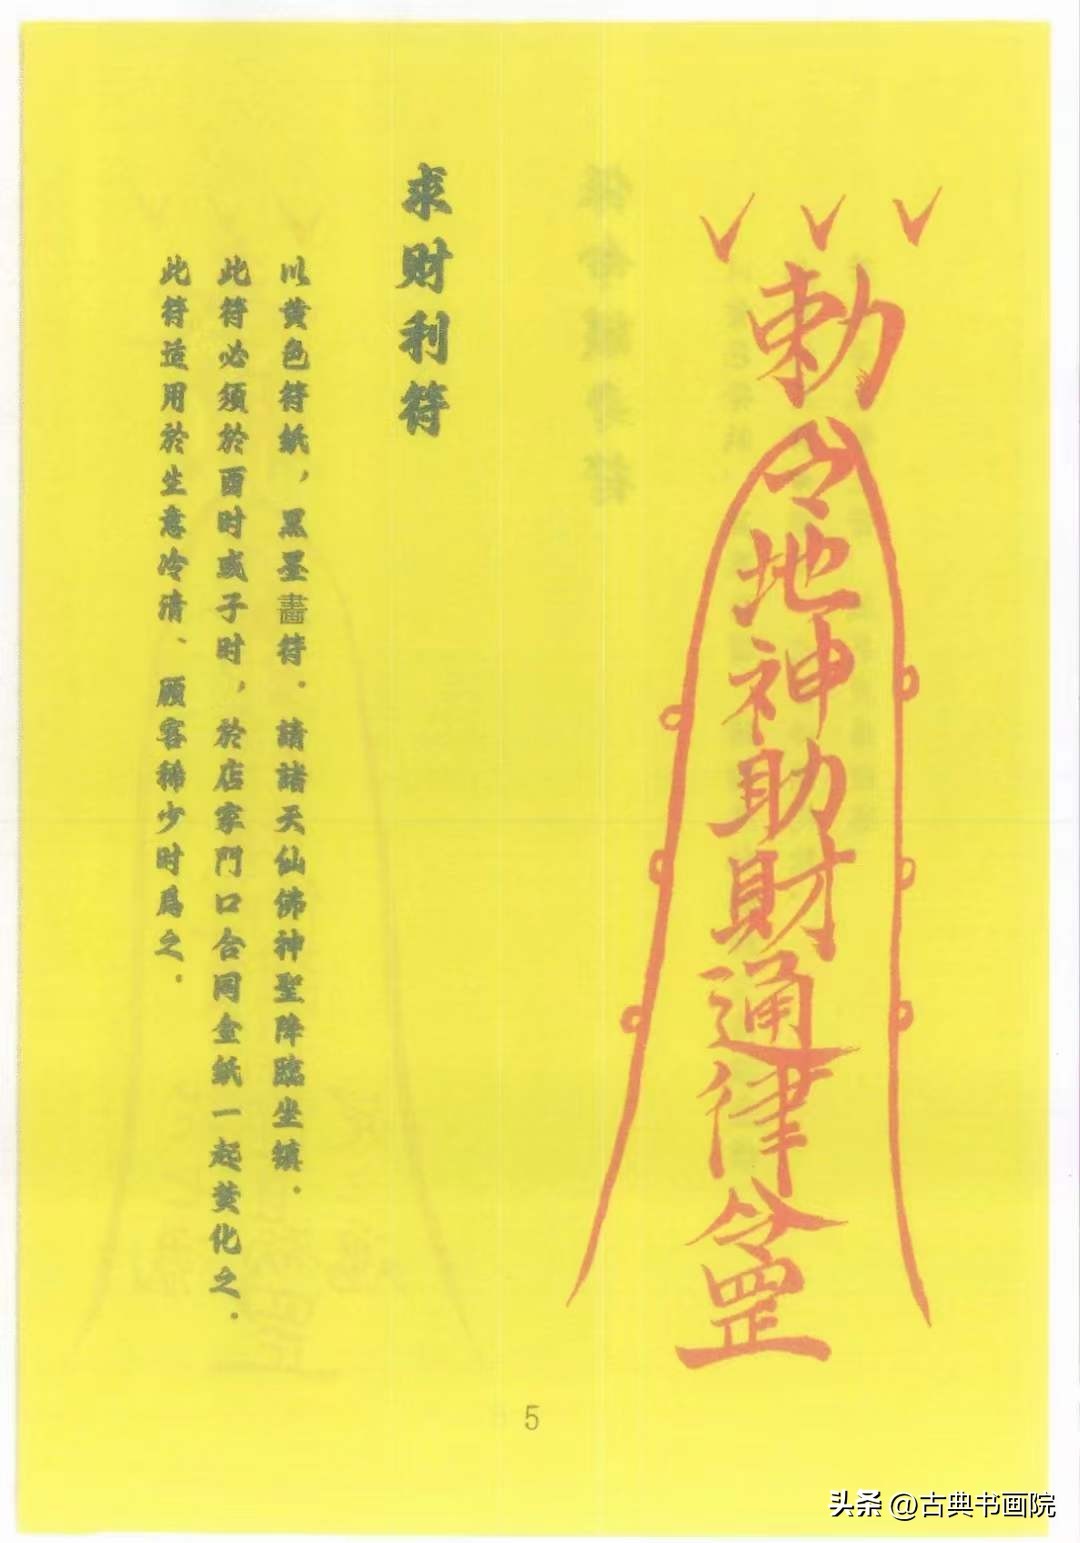 勅令地神助財通律令罡
求财利符
以黄色符紙，黑墨畵符．請諸天仙佛神聖降臨坐镇．
此符必须於酉时或子时，於店家門口合同金紙一起焚化之．
此符适用於生意冷清、顾客稀少时爲之．
5
头条 @古典书画院